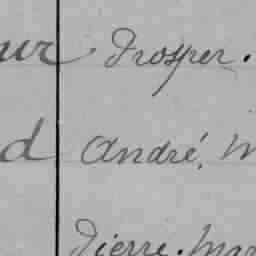 ur Prosper.
d André, M
Pierre. Mar